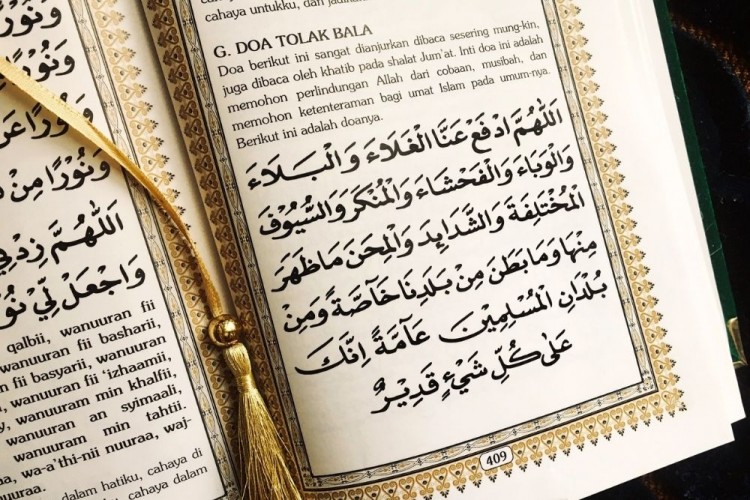 ونورا
ونورا
ونورا عن
ونورا
ونورا من
اللهم زدني
واجعل لي نو
qalbii, wanuuran fii
wanuuran fii basharii,
n fii basyarii, wanuuran
wanuuran fii 'izhaamii,
wanuuran min khalfii,
wanuuran an syimaali,
wanuuram min tahtii.
a, wa-a'thi-nii nuuraa, waj-
uuraa.
dalam hatiku, cahaya di
cahaya dalam
cahaya untukku, dan
G. DOA TOLAK BALA
Doa berikut ini sangat dianjurkan dibaca sesering mung-kin,
juga dibaca oleh khatib pada shalat Jum'at. Inti doa ini adalah
memohon perlindungan Allah dari cobaan, musibah, dan
memohon ketenteraman bagi umat Islam pada umum-nya.
Berikut ini adalah doanya.
اَللّٰهُمَّ ادْفَعْ عَنَّا الْغَلَاءَ وَالْبَلَاءَ
وَالْوَبَاءَ وَالْفَحْشَاءَ وَالْمُنْكَرَ وَالسُّيُوْفَ
الْمُخْتَلِفَةَ وَالشَّدَايِدَ وَالْمِحَنَ مَاظَهَرَ
مِنْهَا وَمَا بَطَنَ مِنْ بَلَدِنَا خَاصَّةً وَمِنْ
بُلْدَانِ الْمُسْلِمِيْنَ عَامَّةً اِنَّكَ
عَلٰى كُلِّ شَيْءٍ قَدِيْرٌ
409